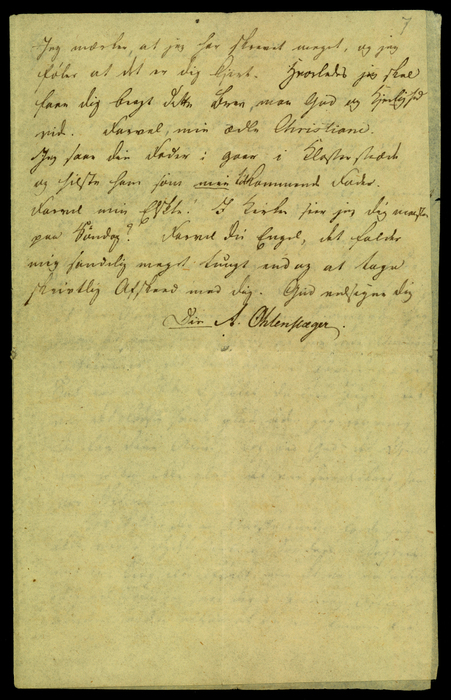 7
Jeg mærker, at jeg har skrevet meget, og jeg
föler at det er dig kiert. Hvorledes jeg skal
faae dig bragt dette Brev, maa Gud og Kierlighed
vide. Farvel, min ædle Christiane.
Jeg saae din Fader i gaar i Klosterstræde
og hilste ham som min Vkommende Fader.
Farvel min Elskte! I Kirken seer jeg dig maaskee
paa Söndag? Farvel du Engel, det falder
mig sandelig meget tungt endog at tage
skrivtlig Afskeed med dig. Gud velsigne dig
Din A. Ohlenslæger.